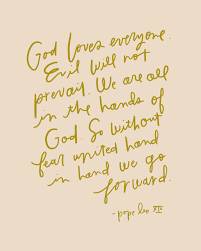 God loves everyone.
Evil will not
prevail. We are all
in the hands of
God. So without
fear united hand
in hand we go
forward.
-pope leo XIV